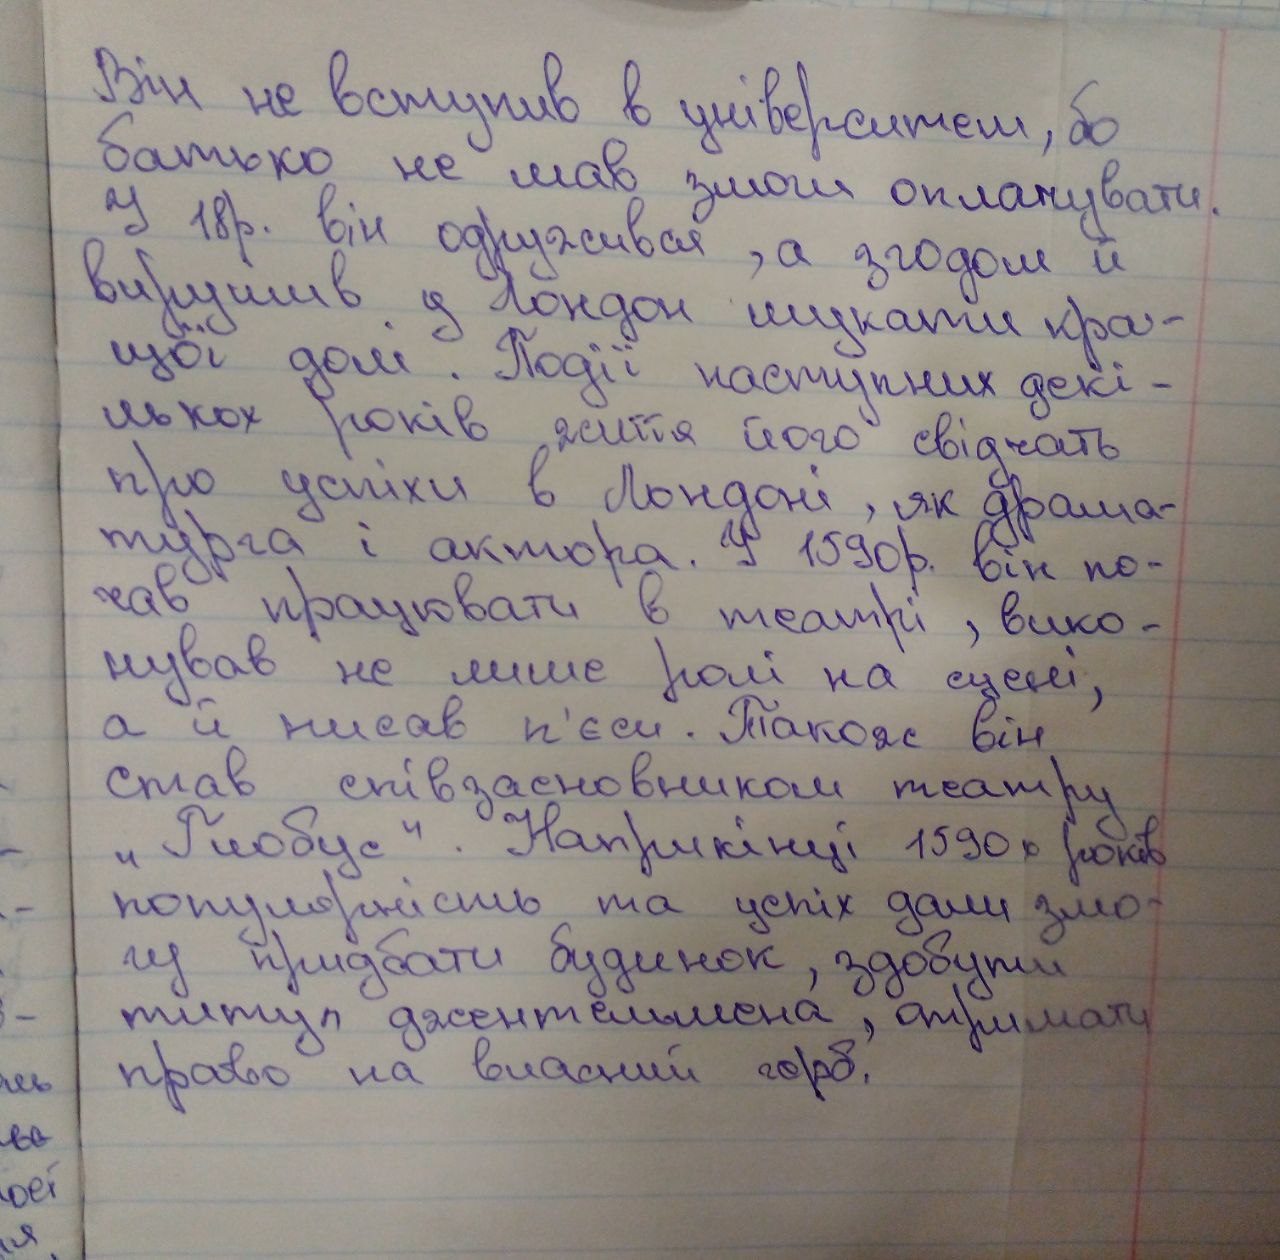 Він не вступив в університет, бо
батько не мав змоги оплачувати.
У 18р. він одружився, а згодом й
вирушив у Лондон шукати кра-
щої долі. Події наступних декі-
лькох років життя його свідчать
про успіхи в Лондоні, як драма-
турга і актора. У 1590р. він по-
чав працювати в театрі, вико-
нував не лише ролі на сцені,
а й писав п'єси. Також він
став співзасновником театру
„Глобус". Наприкінці 1590х років
популярність та успіх дали змо-
гу придбати будинок, здобути
титул джентельмена, отримати
право на власний горб.